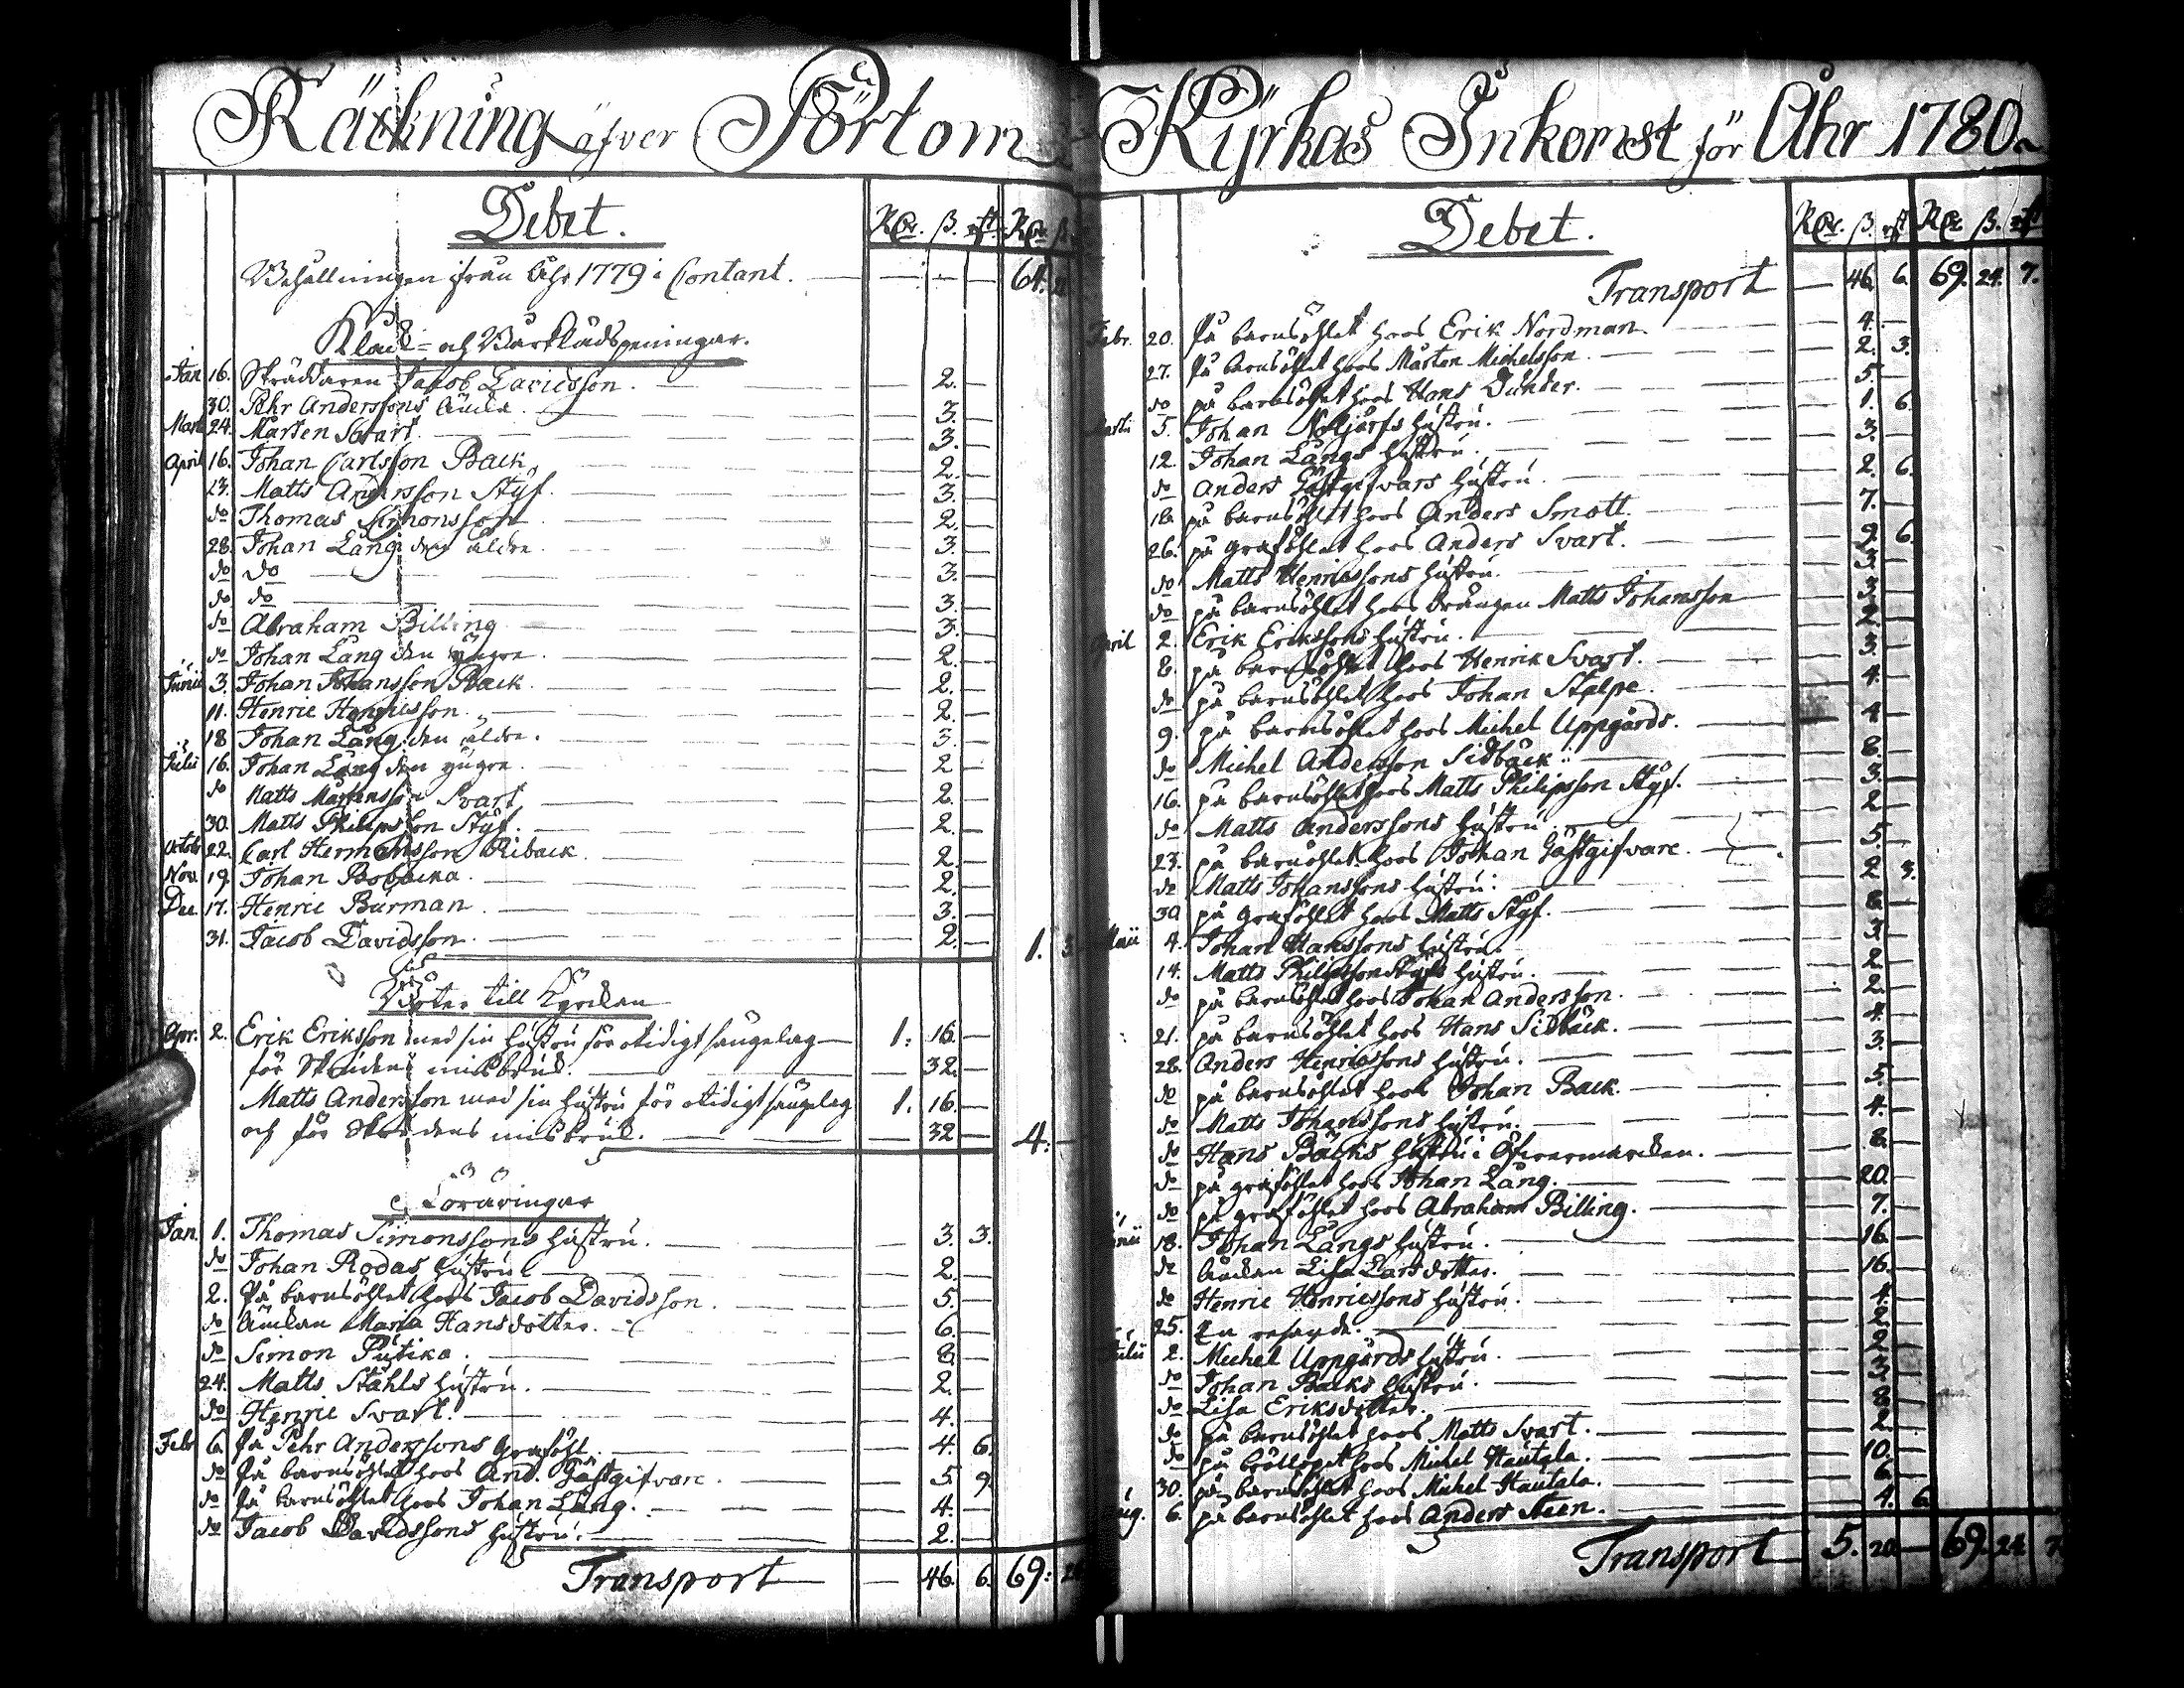 Räckning öfver Pörtom
Debet.
RDr. ß. rst. RDr. ß.
Behållningen ifrån Åhr 1779 i Contant. — — — 64.
Klock- och Barklädspeningar.
Jan 16. Skräddaren Jacob Davidsson. — 2. —
30. Pehr Anderssons Änka. — 3. —
Mart 24. Mårten Svart. — 3. —
April 16. Johan Carlsson Back. — 2. —
23. Matts Andersson Styf. — 3. —
do Thomas Simonsson — 2. —
28. Johan Lång den äldre. — 3. —
do do — 3. —
do do — 3. —
do Abraham Billing — 3. —
do Johan Lång den yngre. — 2. —
Junii 3. Johan Johansson Back. — 2. —
11. Henric Henricsson. — 2. —
18 Johan Lång den äldre. — 3. —
Julii 16. Johan Lång den yngre. — 2 —
do Matts Mårtensson Svart — 2. —
30. Matts Philipsson Styf. — 2. —
Octobr 22. Carl Hermansson Riback. — 2. —
Nov. 19. Johan Bobacka. — 2. —
Dec. 17. Henric Burman. — 3. —
31. Jacob Davidsson. — 2. — 1. 3
Böter till Kyrkan
Apr. 2. Erik Eriksson med sin hustru för otidigt sängelag — 1. 16. —
för Skriftens missbruk. — 32. —
Matts Andersson med sin hustru för otidigt sängelag 1. 16. —
och för Skriftens misbruk. — 32 — 4. —
Föräringar
Jan. 1. Thomas Simonssons hustru. — 3. 3.
do Johan Rodas hustru — 2. —
2. På barnsöhlet hos Jacob Davidsson. — 5. —
do Änkan Maria Hansdotter. — 6. —
do Simon Putika. — 8. —
24. Matts Ståhls hustru. — 2. —
do Henric Svart. — 4. —
Febr 6. På Pehr Anderssons Graföhl. — 4. 6.
do På barnsöhlet hos And. Gästgifvare. — 5 9.
do På barnsöhlet hos Johan Lång. — 4. —
do Jacob Davidssons hustru. — 2. —
Transport — 46. 6. 69.
Kyrkas Inkomst för Åhr 1780.
Debet.
RDr. ß. rst RDr ß. rst
Transport — 46. 6. 69. 24. 7.
Febr. 20. På barnsöhlet hos Erik Nordman. — 4. —
27. På barnsöhlet hos Mårten Michelsson. — 2. 3.
do på barnsöhlet hos Hans Dunder. — 5. —
Martii 5. Johan Noljärfs hustru. — 1. 6.
12. Johan Långs hustru. — 3. —
do Anders Gästgifvars hustru. — 2. 6.
18. på barnsöhlet hos Anders Smått. — 7. —
26. på graföhlet hos Anders Svart. — 9. 6.
do Matts Henricssons hustru. — 3. —
do på barnsöhlet hos drängen Matts Johansson — 3. —
April 2. Erik Erikssons hustru. — 2. —
8. på barnsöhlet hos Henrik Svart. — 3. —
do på barnsöhlet hos Johan Stolpe. — 4. —
9. på barnsöhlet hos Michel Uppgårds. — 4 —
do Michel Andersson Sidbäck — 8. —
16. på barnsöhlet hos Matts Philipsson Styf. — 3. —
do Matts Anderssons hustru — 2 —
23. på barnsöhlet hos Johan Gästgifvare. — 5. —
do Matts Johanssons hustru. — 2 3.
30 på graföhlet hos Matts Styf. — 8. —
Maii 4. Johan Hanssons hustru. — 3. —
14. Matts Philipsson Styfs hustru. — 2. —
do på barnsöhlet hos Johan Andersson. — 2. —
21. på barnsöhlet hos Hans Sidbäck. — 4. —
28. Anders Henricssons hustru. — 3. —
do på barnsöhlet hos Johan Back. — 5. —
do Matts Johanssons hustru. — 4. —
do Hans Bäcks hustru i Öfvermarken. — 8. —
do på graföhlet hos Johan Lång. — 20. —
do på graföhlet hos Abraham Billing. — 7. —
Junii 18. Johan Långs hustru. — 16. —
do Änkan Lisa Larsdotter. — 16. —
do Henric Henricssons hustru. — 4. —
25. En resande. — 2. —
Julii 2. Michel Uppgårds hustru. — 2. —
do Johan Backs hustru. — 3. —
do Lisa Eriksdotter. — 8. —
do på barnsöhlet hos Matts Svart. — 2. —
do på bröllopet hos Michel Hautala. — 10. —
30. på barnsöhlet hos Michel Hautala. — 6. —
Aug. 6. på barnsöhlet hos Anders Steen. — 4. 6
Transport — 5. 20. — 69. 24 7.